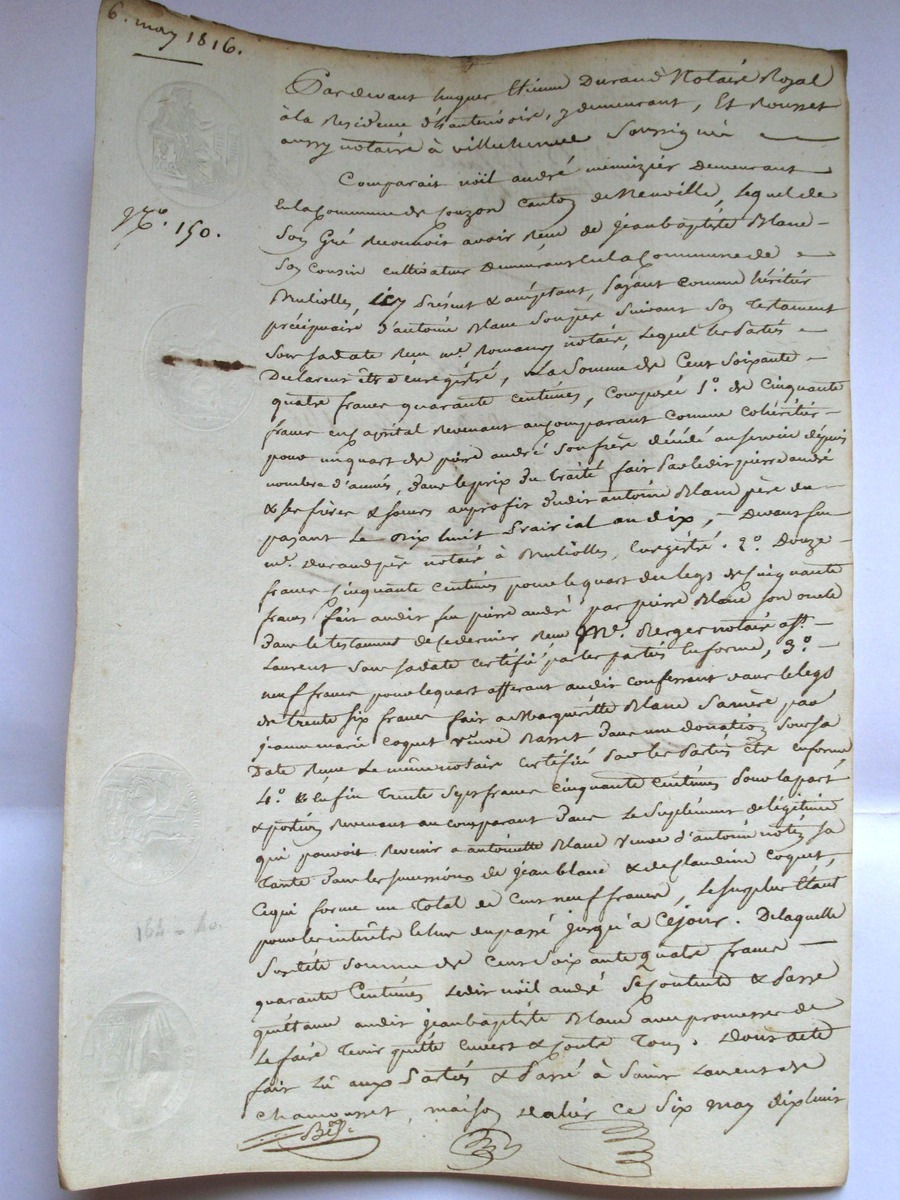 6. may 1816.
Pardevant hugues Etienne Durand Notaire Royal
à la Residence d'hauterivoire, y demeurant, Et Rousset
aussy notaire à villechenève Soussignés
Comparait nöil andré menuizier Demeurant
En la Commune de Souzon Canton de Neuville, Lequel de
Son Gré Reconnoit avoir Reçu de jeanbaptiste Blanc
N.º 150.
Son Cousin cultivateur Demeurant En la Commune de
Bruliolles, icy present & acceptant, payant comme héritier
préciputaire d'antoine Blanc Son père Suivant Son Testament
Sous sa date Reçu m.e Romany notaire, Lequel les Parties
Declarent être enregistré, La Somme de Cent Soixante
quatre francs quarante Centimes, Composée 1.º de Cinquante
francs en Capital Revenant au Comparant comme cohéritier
pour un quart de pierre andré Son frère décédé au service depuis
nombre d'années, dans le prix du traité fait par ledit pierre andré
& ses frères & sœurs au profit dudit antoine Blanc père du
payant Le dix huit Prairial an dix, Devant feu
m.e Durand père notaire à Bruliolles, Enregistré. 2.º Douze
francs Cinquante Centimes pour le quart du legs de Cinquante
francs fait audit feu pierre andré par pierre Blanc Son oncle
Dans le testament de ce dernier Reçu M.e Berger notaire à S.t
Laurent Sous sa date certifié par les parties En forme, 3.º
neuf francs pour le quart afferant audit confessant dans le legs
de trente six francs fait à Marguerite Blanc Sa mère par
jeanne marie Coquet veuve Basset Dans une donation Sous sa
Date Reçue Le même notaire certifiée Par les Parties être en forme
4.º & Enfin Trente Sept francs cinquante Centimes Pour la part
& portion Revenant au comparant Dans Le Suplément de légitime
qui pouvoit Revenir à antoinette Blanc veuve d'antoine Sa
Tante dans les successions de jean blanc & de Claudine Coquet,
Ce qui forme un Total de Cent neuf francs, Le Surplus Etant
pour les intérêts du passé jusqu'à Ce jour. De laquelle
164 = 40.
Somme de Cent Soixante quatre francs
quarante Centimes Ledit nöil andré Se Contente & Passe
quittance audit jeanbaptiste Blanc avec promesse de
Le faire Tenir quitte Envers & Contre Tous. Dont acte
fait Lû aux Parties & Passé à Saint Laurent de
Chamousset, maison Ce Six may dix huit